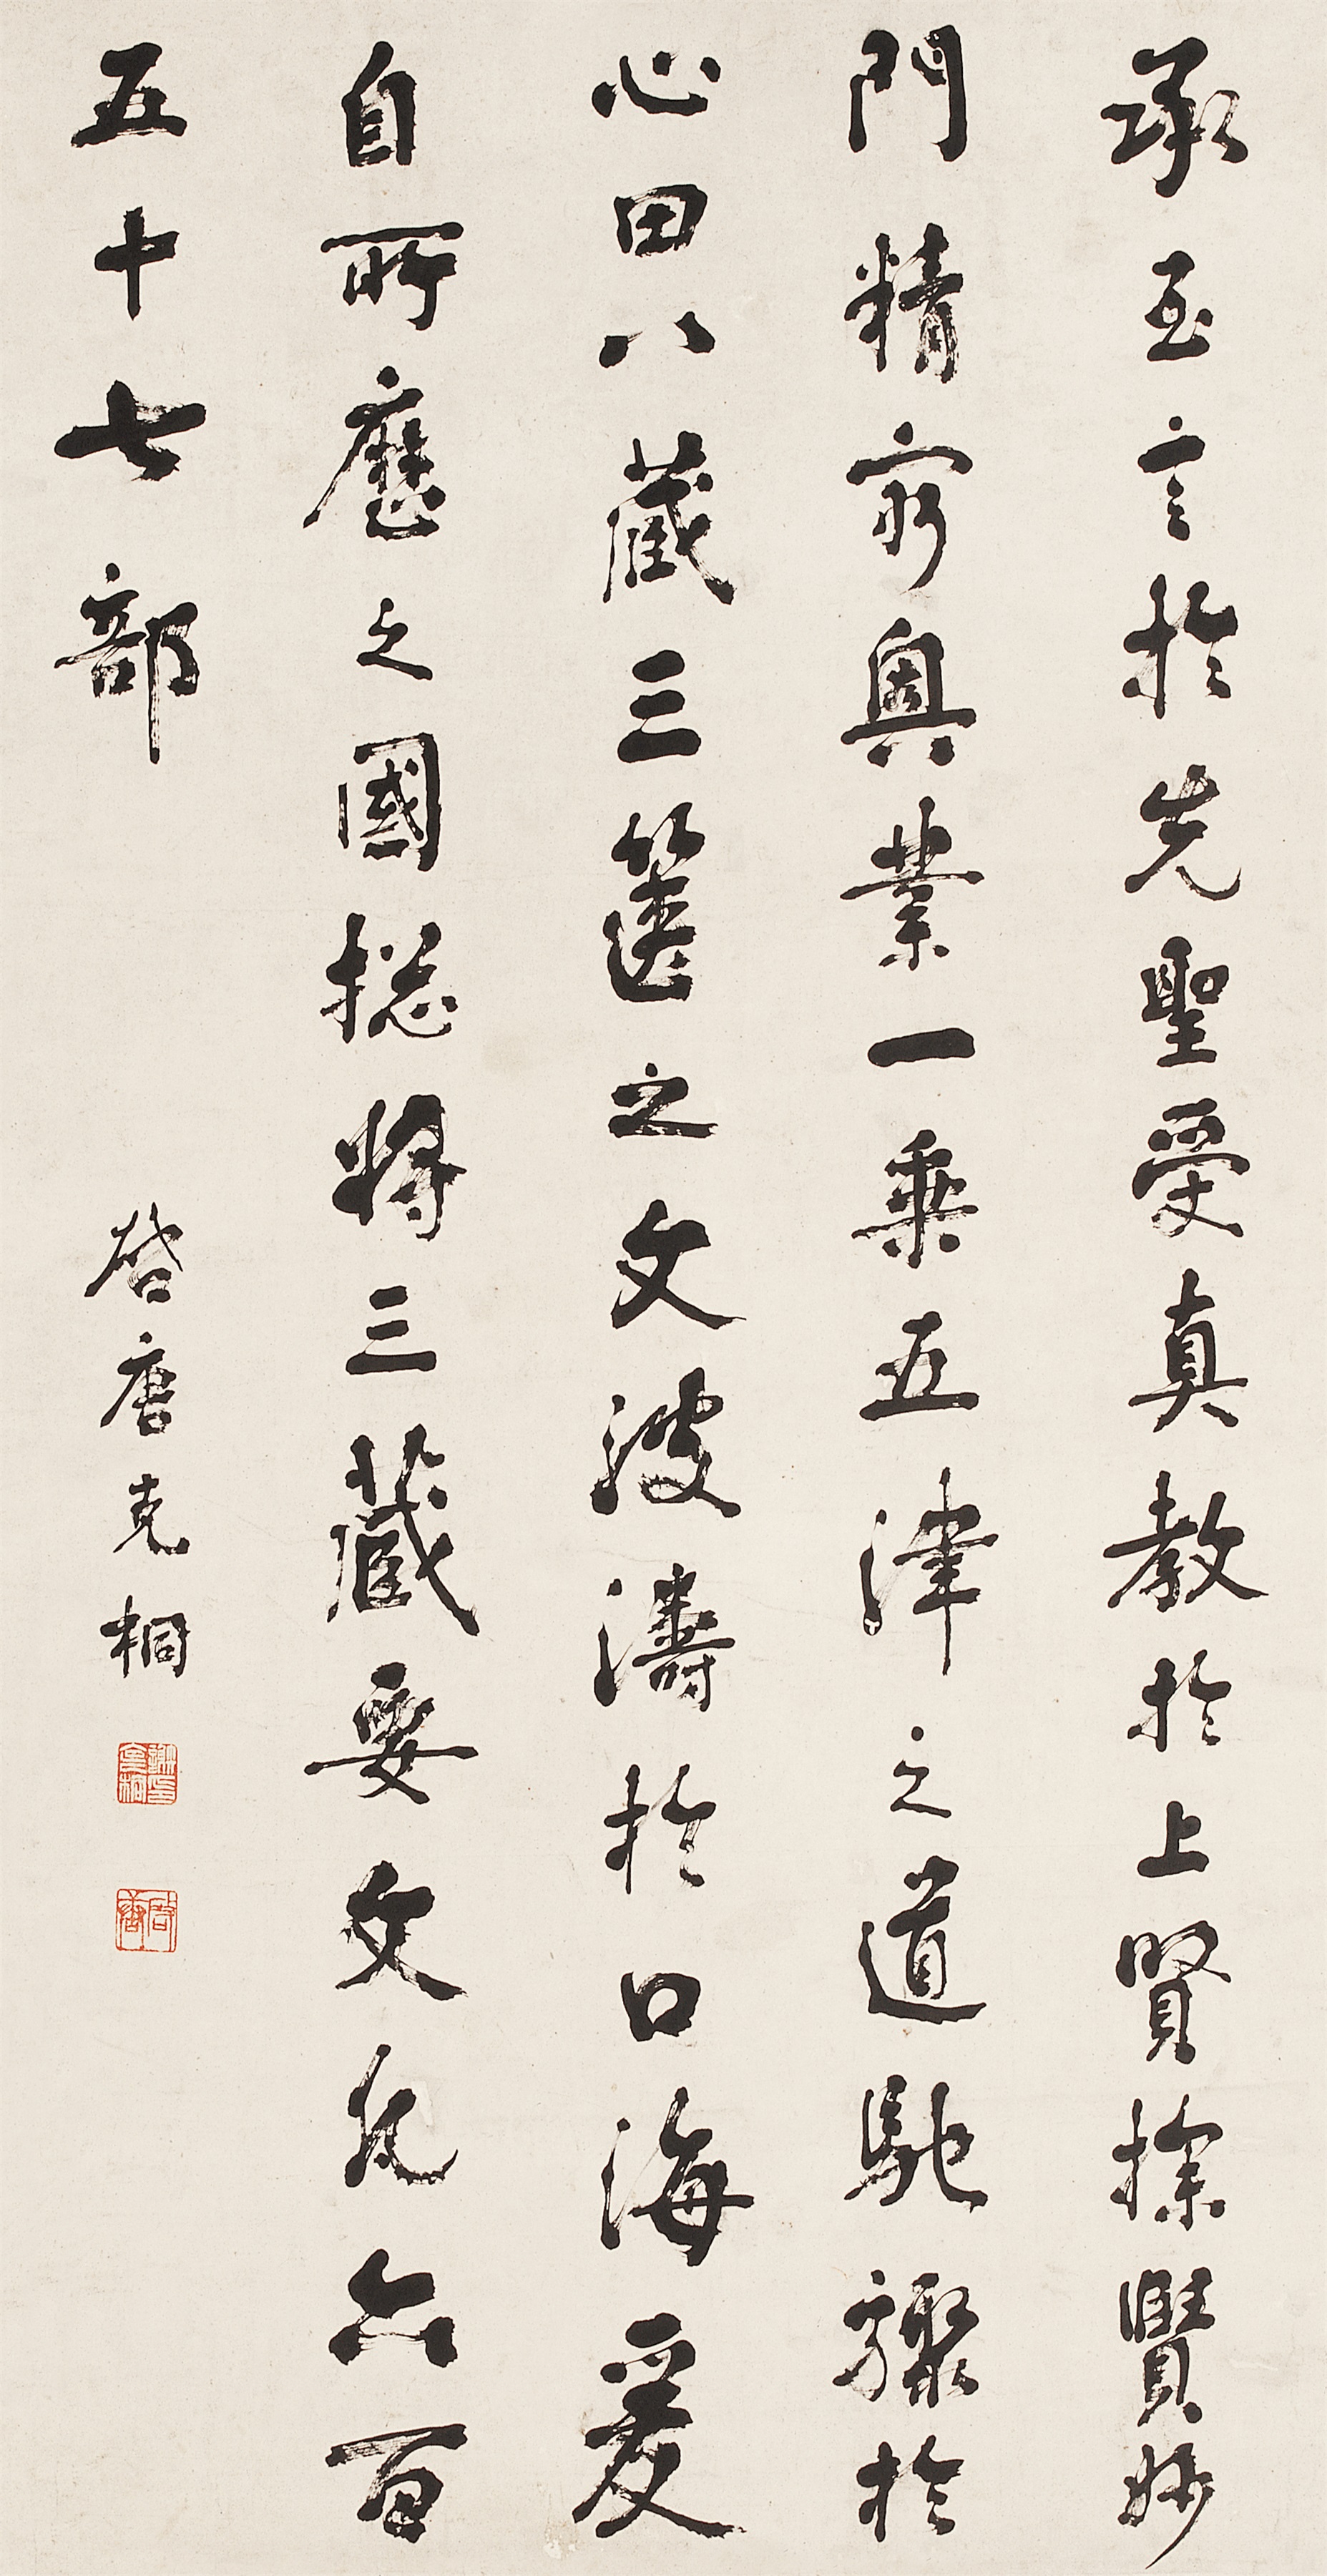 承至言於先聖受真教於上賢探賾妙
門精窮奧業一乘五津之道馳驟於
心田八藏三篋之文波濤於口海爰
自所歷之國捴將三藏要文凡六百
五十七部
啓唐克桐
啓唐